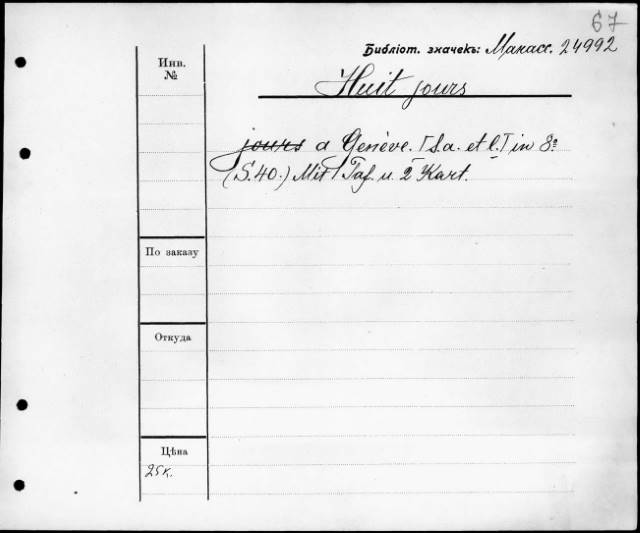 67
Библіот. значекъ: Манасс. 24992
Инв.
№
Huit jours
jours a Genève. [S a. et l.] in 8º
(S. 40.) Mit 1 Taf. u. 2 Kart.
По заказу
Откуда
Цѣна
25к.